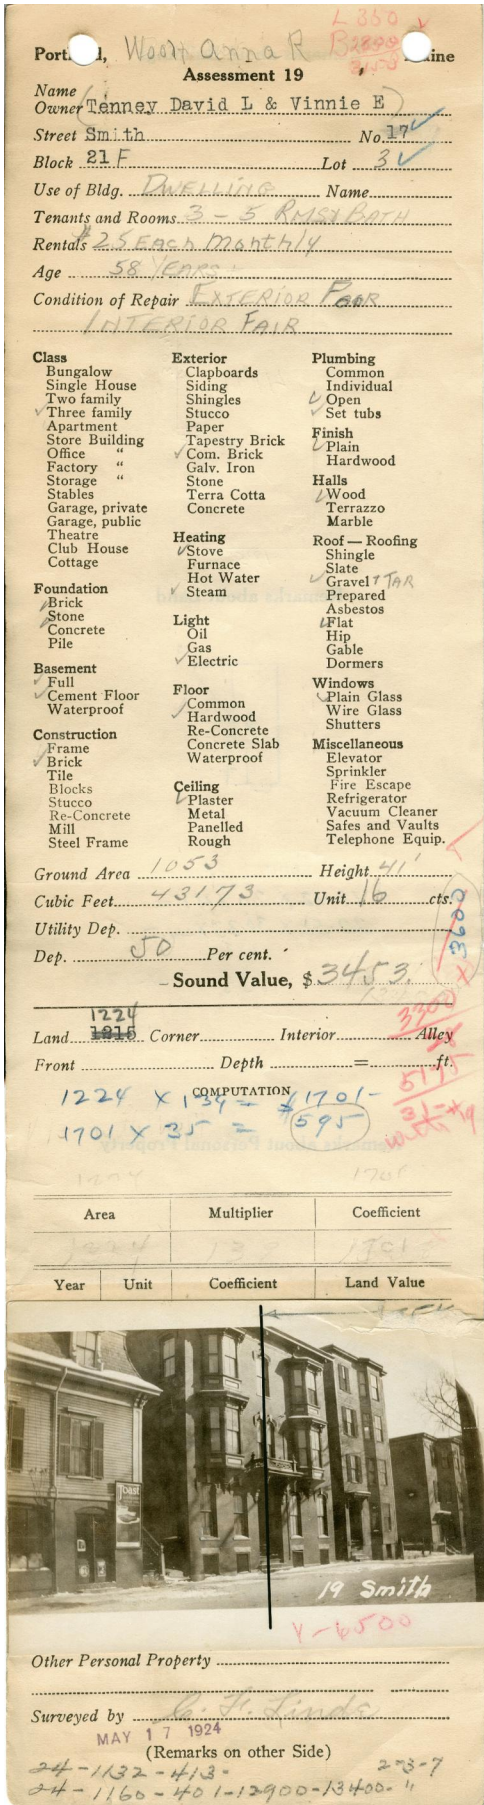 L 360
Portland, Wooh Anna R Maine
B 2800
3458
Assessment 19
Name
Owner (Tenney David L & Vinnie E)
Street Smith No. 17
Block 21 F Lot 3
Use of Bldg. DWELLING Name
Tenants and Rooms 3 - 5 RMS & BATH
Rentals $25 Each Monthly
Age 58 YEARS.
Condition of Repair EXTERIOR POOR
INTERIOR FAIR
Class
Bungalow
Single House
Two family
Three family
Apartment
Store Building
Office "
Factory "
Storage "
Stables
Garage, private
Garage, public
Theatre
Club House
Cottage
Foundation
Brick
Stone
Concrete
Pile
Basement
Full
Cement Floor
Waterproof
Construction
Frame
Brick
Tile
Blocks
Stucco
Re-Concrete
Mill
Steel Frame
Exterior
Clapboards
Siding
Shingles
Stucco
Paper
Tapestry Brick
Com. Brick
Galv. Iron
Stone
Terra Cotta
Concrete
Heating
Stove
Furnace
Hot Water
Steam
Light
Oil
Gas
Electric
Floor
Common
Hardwood
Re-Concrete
Concrete Slab
Waterproof
Ceiling
Plaster
Metal
Panelled
Rough
Plumbing
Common
Individual
Open
Set tubs
Finish
Plain
Hardwood
Halls
Wood
Terrazzo
Marble
Roof — Roofing
Shingle
Slate
Gravel & TAR
Prepared
Asbestos
Flat
Hip
Gable
Dormers
Windows
Plain Glass
Wire Glass
Shutters
Miscellaneous
Elevator
Sprinkler
Fire Escape
Refrigerator
Vacuum Cleaner
Safes and Vaults
Telephone Equip.
Ground Area 1053 Height 41'
Cubic Feet 43173 Unit 16 cts.
3600
Utility Dep.
Dep. 50 Per cent.
Sound Value, $3453.
1224
Land 1215 Corner Interior Alley
3300
Front Depth = ft.
5175
COMPUTATION
1224 x 139 = $1701-
1701 x 35 = 595
31=#19
with
1224 1701
Area Multiplier Coefficient
1224 139 1701
Year Unit Coefficient Land Value
Toast
19 Smith
V-6500
Other Personal Property
Surveyed by C. H. Linde
MAY 17 1924
(Remarks on other Side)
24-1132-413- 2-3-7
24-1160-401-12900-13400- "